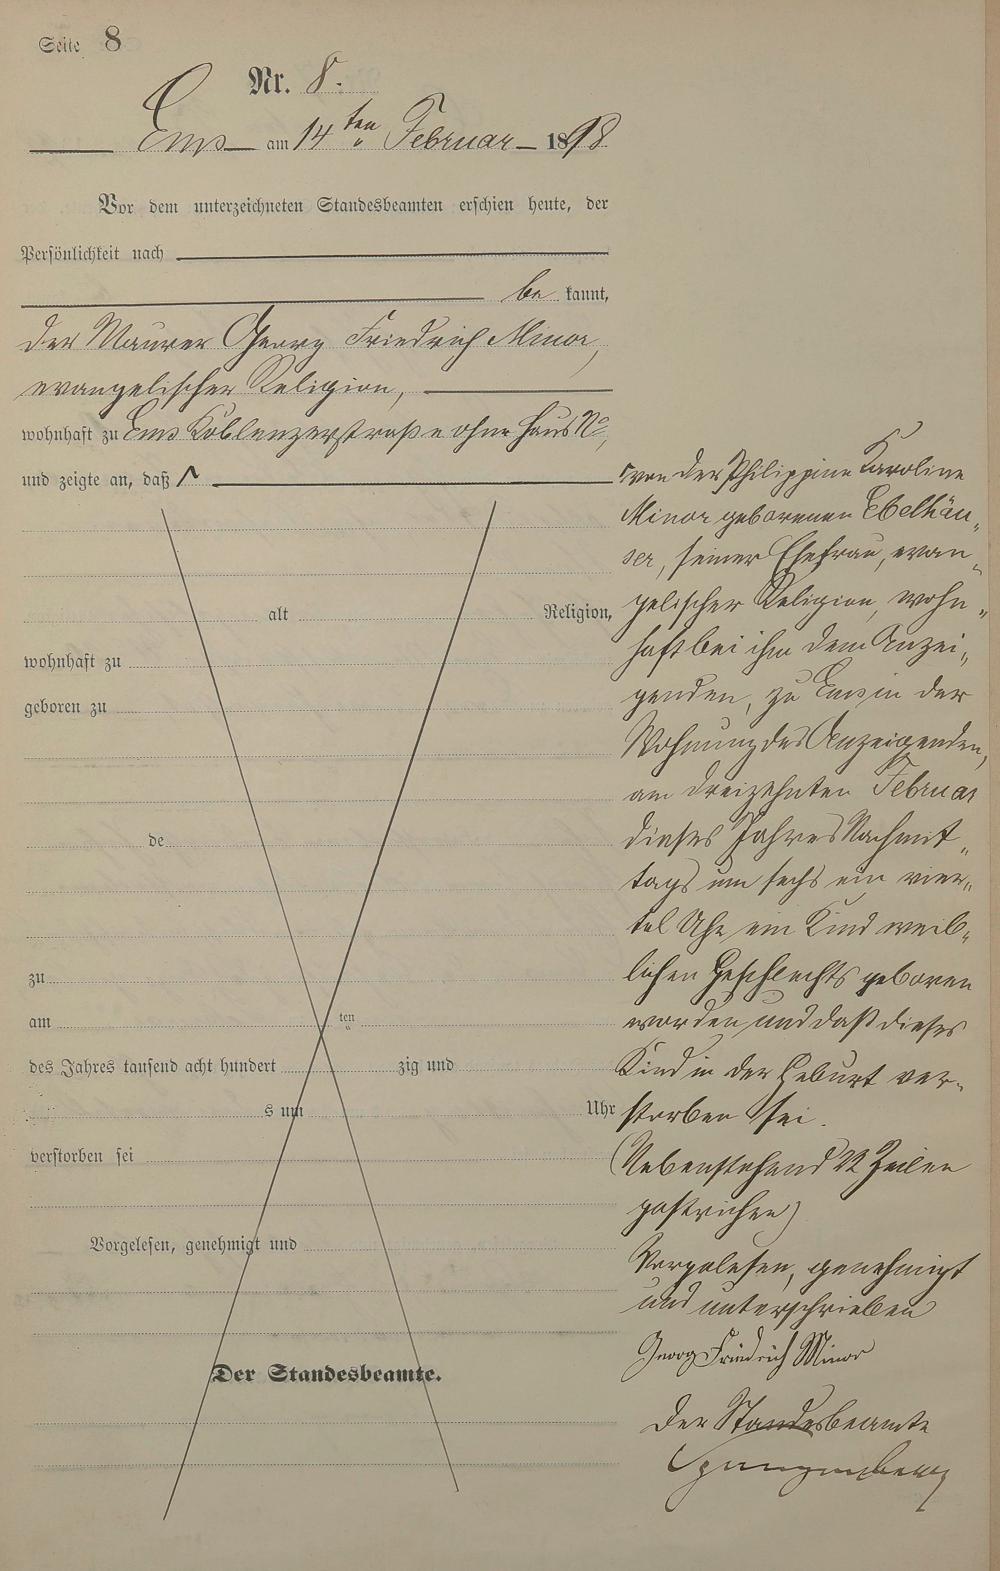 Seite 8
Nr. 8.
Ems am 14ten Februar 1898
Vor dem unterzeichneten Standesbeamten erschien heute, der
Persönlichkeit nach
be kannt,
der Maurer Georg Friedrich Minor,
evangelischer Religion,
wohnhaft zu Ems Koblenzerstraße ohne Haus No,
und zeigte an, daß
von der Philippine Karoline
Minor geborenen Ebelhäu-
ser, seiner Ehefrau, evan-
gelischer Religion, wohn-
haft bei ihm dem Anzei-
genden, zu Ems in der
Wohnung des Anzeigenden,
am dreizehnten Februar
dieses Jahres Nachmit-
tags um sechs ein vier-
tel Uhr ein Kind weib-
lichen Geschlechts geboren
worden und daß dieses
Kind in der Geburt ver-
storben sei.
(Nebenstehend 22 Zeilen
gestrichen)
Vorgelesen, genehmigt
und unterschrieben
Georg Friedrich Minor
Der Standesbeamte
alt Religion,
wohnhaft zu
geboren zu
de
zu
am ten
des Jahres tausend acht hundert zig und
s um Uhr
verstorben sei
Vorgelesen, genehmigt und
Der Standesbeamte.